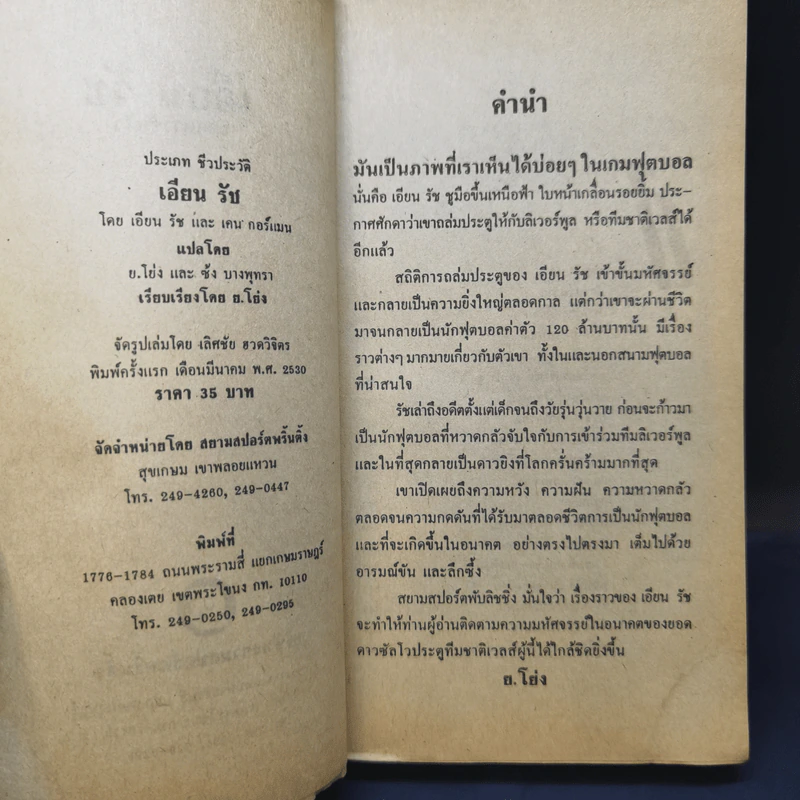 ประเภท ชีวประวัติ
เอียน รัช
โดย เอียน รัช และ เคน กอร์แมน
แปลโดย
ย.โย่ง และ ซ้ง บางพุทรา
เรียบเรียงโดย ย.โย่ง
จัดรูปเล่มโดย เลิศชัย ฮวดวิจิตร
พิมพ์ครั้งแรก เดือนมีนาคม พ.ศ. 2530
ราคา 35 บาท
จัดจำหน่ายโดย สยามสปอร์ตพริ้นติ้ง
สุขเกษม เขาพลอยแหวน
โทร. 249-4260, 249-0447
พิมพ์ที่
1776-1784 ถนนพระรามสี่ แยกเกษมราษฎร์
คลองเตย เขตพระโขนง กท. 10110
โทร. 249-0250, 249-0295
คำนำ
มันเป็นภาพที่เราเห็นได้บ่อยๆ ในเกมฟุตบอล
นั่นคือ เอียน รัช ชูมือขึ้นเหนือฟ้า ใบหน้าเกลื่อนรอยยิ้ม ประ-
กาศศักดาว่าเขาถล่มประตูให้กับลิเวอร์พูล หรือทีมชาติเวลส์ได้
อีกแล้ว
สถิติการถล่มประตูของ เอียน รัช เข้าขั้นมหัศจรรย์
และกลายเป็นความยิ่งใหญ่ตลอดกาล แต่กว่าเขาจะผ่านชีวิต
มาจนกลายเป็นนักฟุตบอลค่าตัว 120 ล้านบาทนั้น มีเรื่อง
ราวต่างๆ มากมายเกี่ยวกับตัวเขา ทั้งในและนอกสนามฟุตบอล
ที่น่าสนใจ
รัชเล่าถึงอดีตตั้งแต่เด็กจนถึงวัยรุ่นวุ่นวาย ก่อนจะก้าวมา
เป็นนักฟุตบอลที่หวาดกลัวจับใจกับการเข้าร่วมทีมลิเวอร์พูล
และในที่สุดกลายเป็นดาวยิงที่โลกครั่นคร้ามมากที่สุด
เขาเปิดเผยถึงความหวัง ความฝัน ความหวาดกลัว
ตลอดจนความกดดันที่ได้รับมาตลอดชีวิตการเป็นนักฟุตบอล
และที่จะเกิดขึ้นในอนาคต อย่างตรงไปตรงมา เต็มไปด้วย
อารมณ์ขัน และลึกซึ้ง
สยามสปอร์ตพับลิชชิ่ง มั่นใจว่า เรื่องราวของ เอียน รัช
จะทำให้ท่านผู้อ่านติดตามความมหัศจรรย์ในอนาคตของยอด
ดาวซัลโวประตูทีมชาติเวลส์ผู้นี้ได้ใกล้ชิดยิ่งขึ้น
ย.โย่ง